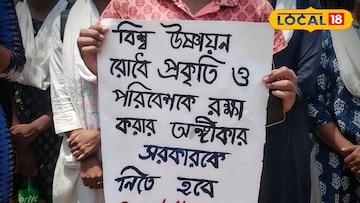 LOCAL 18
বিশ্ব উষ্ণায়ন
রোধে প্রকৃতি ও
পরিবেশকে রক্ষা
করার অঙ্গীকার
সরকারকে
নিতে হবে